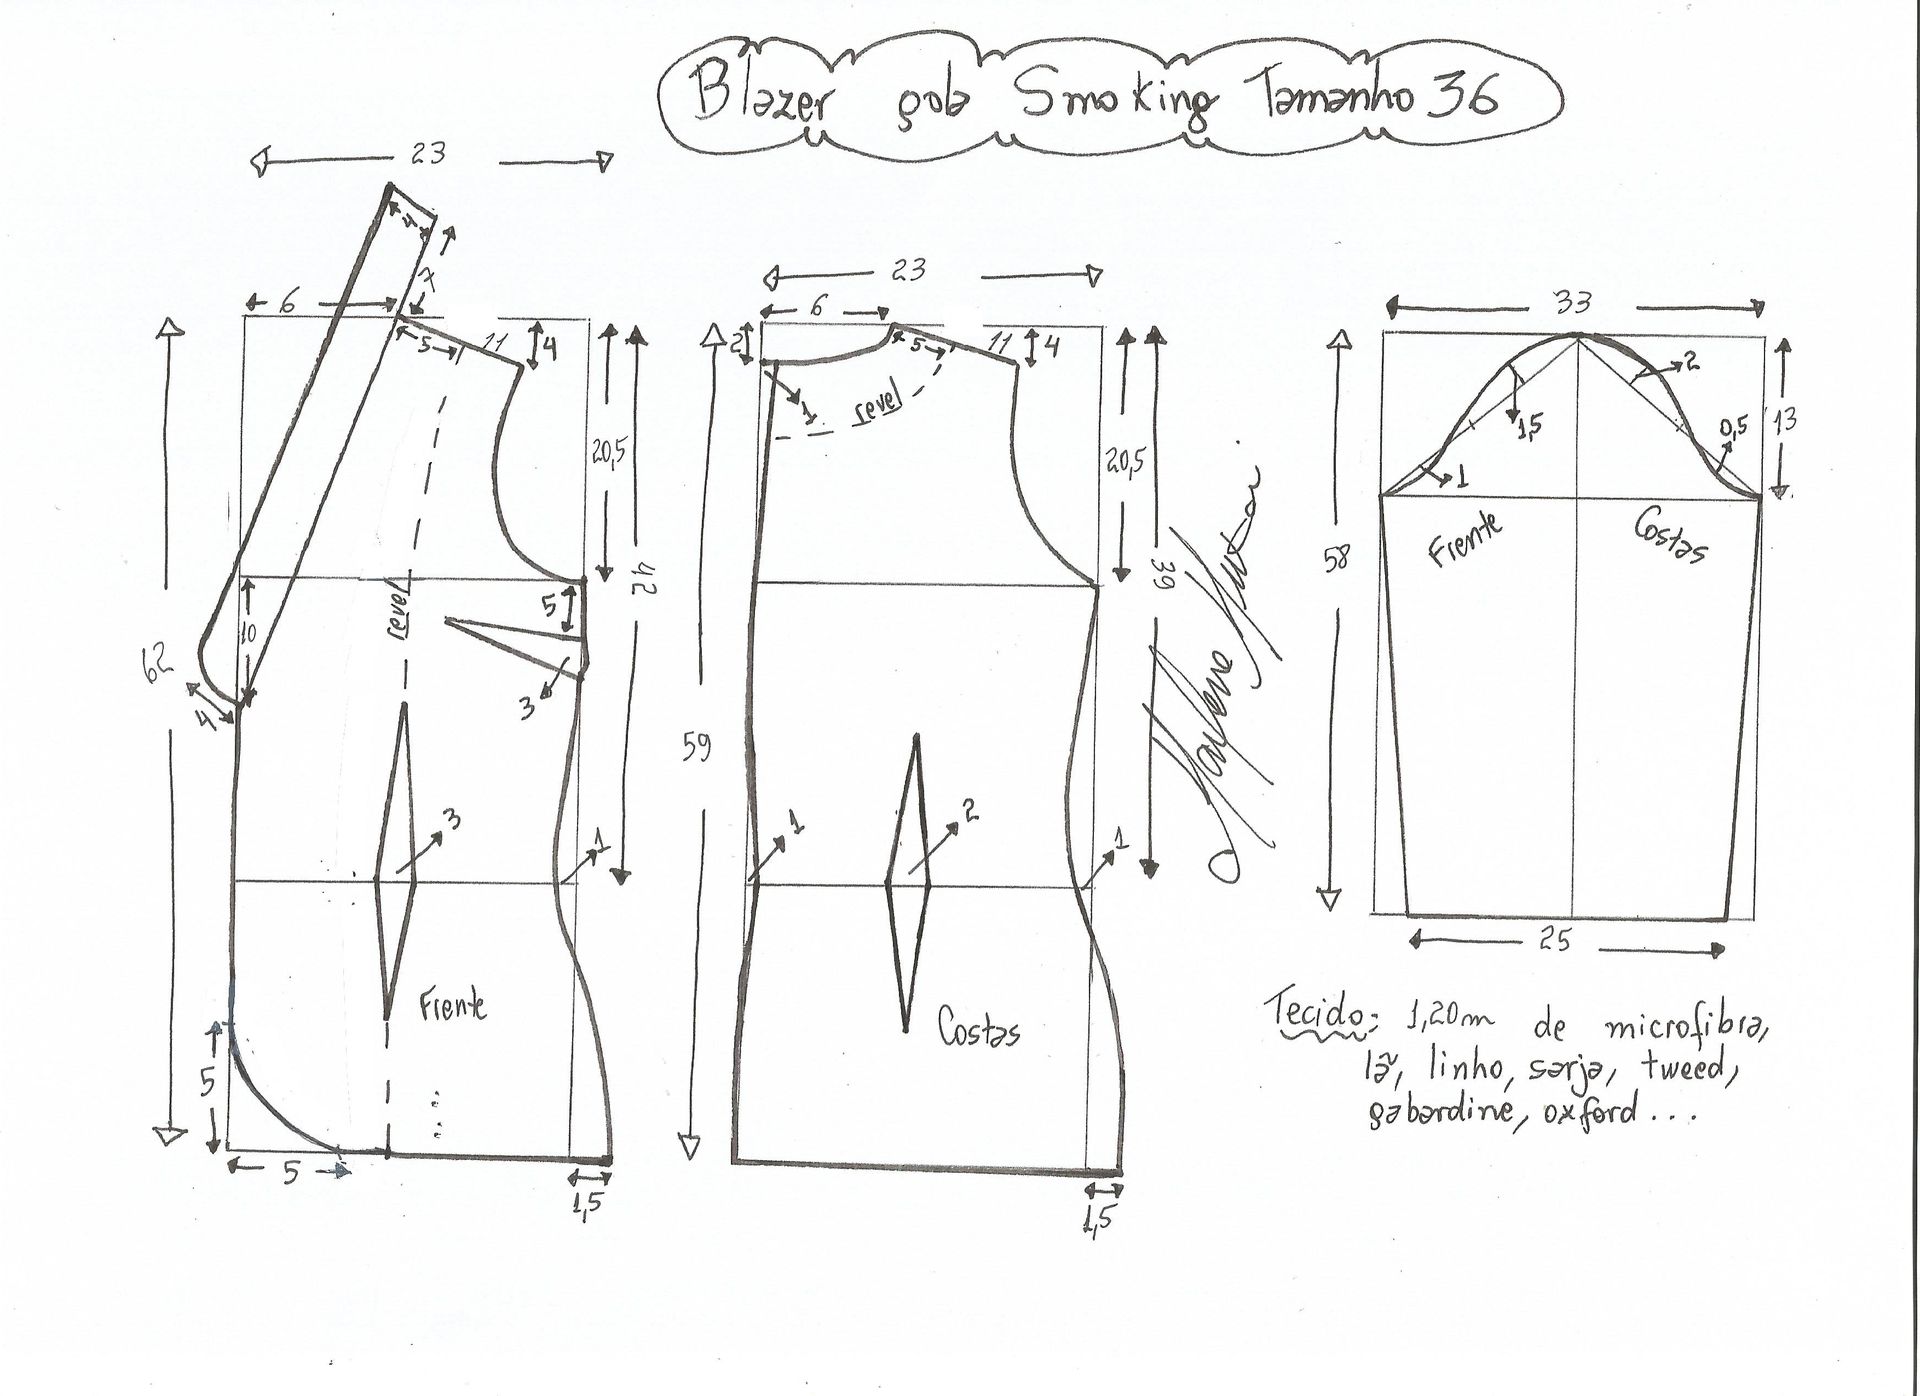 Blazer gola Smoking Tamanho 36
23
4
7
6
5
11
4
20,5
42
62
revel
10
5
3
4
3
1
Frente
5
5
1,5
23
6
2
5
11
4
1
revel
20,5
39
59
1
2
1
Costas
1,5
33
2
1,5
0,5
13
1
Frente
Costas
58
25
Tecido: 1,20m de microfibra,
lã, linho, sarja, tweed,
gabardine, oxford...